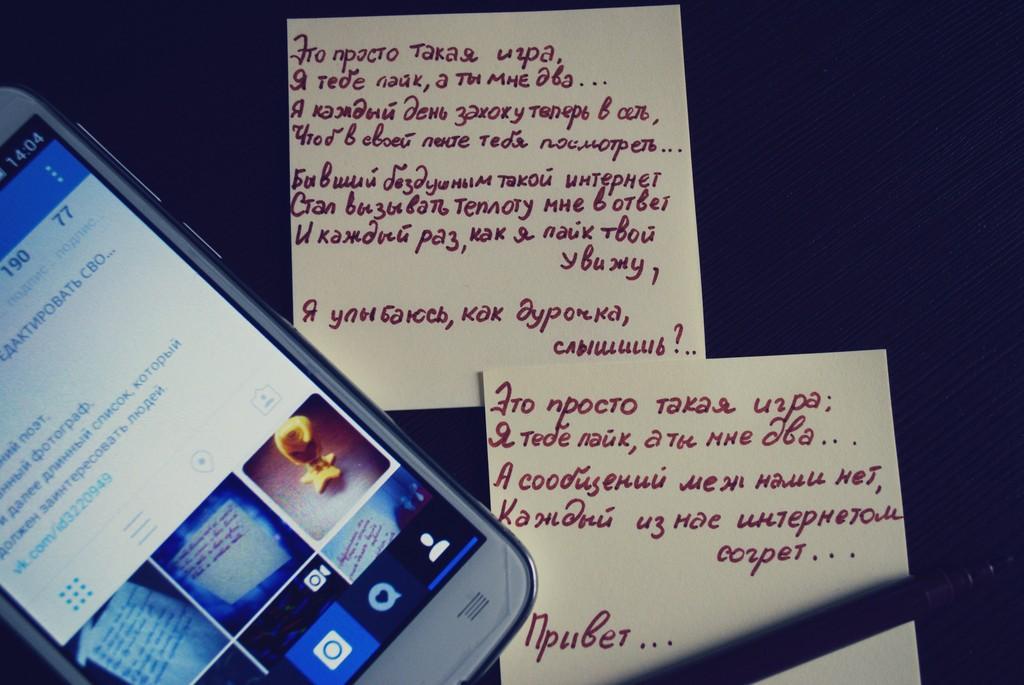 Это просто такая игра,
Я тебе лайк, а ты мне два...
Я каждый день захожу теперь в сеть,
Чтоб в своей ленте тебя посмотреть...
Бывший бездушным такой интернет
Стал вызывать теплоту мне в ответ
И каждый раз, как я лайк твой
увижу,
Я улыбаюсь, как дурочка,
слышишь?..
Это просто такая игра:
Я тебе лайк, а ты мне два...
А сообщений меж нами нет,
Каждый из нас интернетом
согрет...
Привет...
14:04
190 77
подпис... подпис...
ЕДАКТИРОВАТЬ СВО...
ний поэт.
нный фотограф.
и далее длинный список, который
должен заинтересовать людей.
vk.com/id3220949